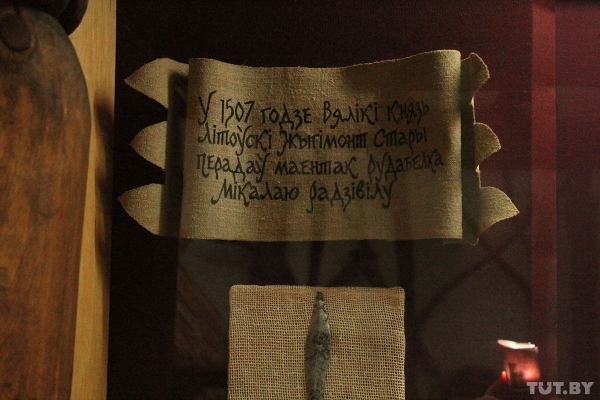 У 1507 годзе Вялікі Князь
Літоўскі Жыгімонт Стары
перадаў маентак Рудабелка
Мікалаю Радзівілу
TUT.BY